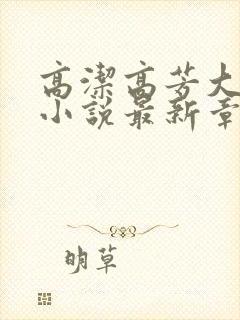 高潔高芳大
小說最新章
明草